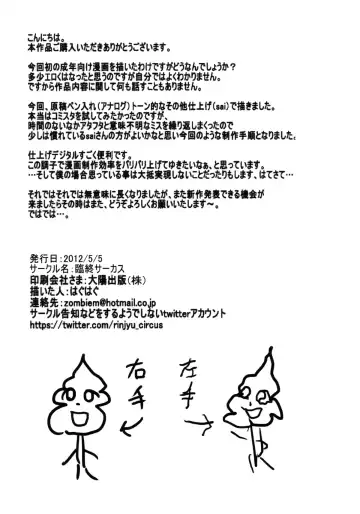 こんにちは。
本作品ご購入いただきありがとうございます。
今回初の成年向け漫画を描いたわけですがどうなんでしょうか?
多少エロくはなったと思うのですが自分ではよくわかりません。
ですから作品内容に関して何も話すこともありません。
今回、原稿ペン入れ(アナログ)トーン的なその他仕上げ(sai)で描きました。
本当はコミスタを試してみたかったのですが、
時間のないなかアタフタと意味不明なミスを繰り返しまくったので
少しは慣れているsaiさんの方がよいかなと思い今回のような制作手順となりました。
仕上げデジタルすごく便利です。
この調子で漫画制作効率をバリバリ上げてゆきたいなぁ、と思っています。
…そして僕の場合思っている事は大抵実現しないことだったりもします、はてさて…
それではそれでは無意味に長くなりましたが、また新作発表できる機会が
来ましたらその時はまた、どうぞよろしくお願いいたします~。
ではでは…。
発行日:2012/5/5
サークル名:臨終サーカス
印刷会社さま:大陽出版(株)
描いた人:はぐはぐ
連絡先:zombiem@hotmail.co.jp
サークル告知などをするようでしないtwitterアカウント
https://twitter.com/rinjyu_circus
右手
左手